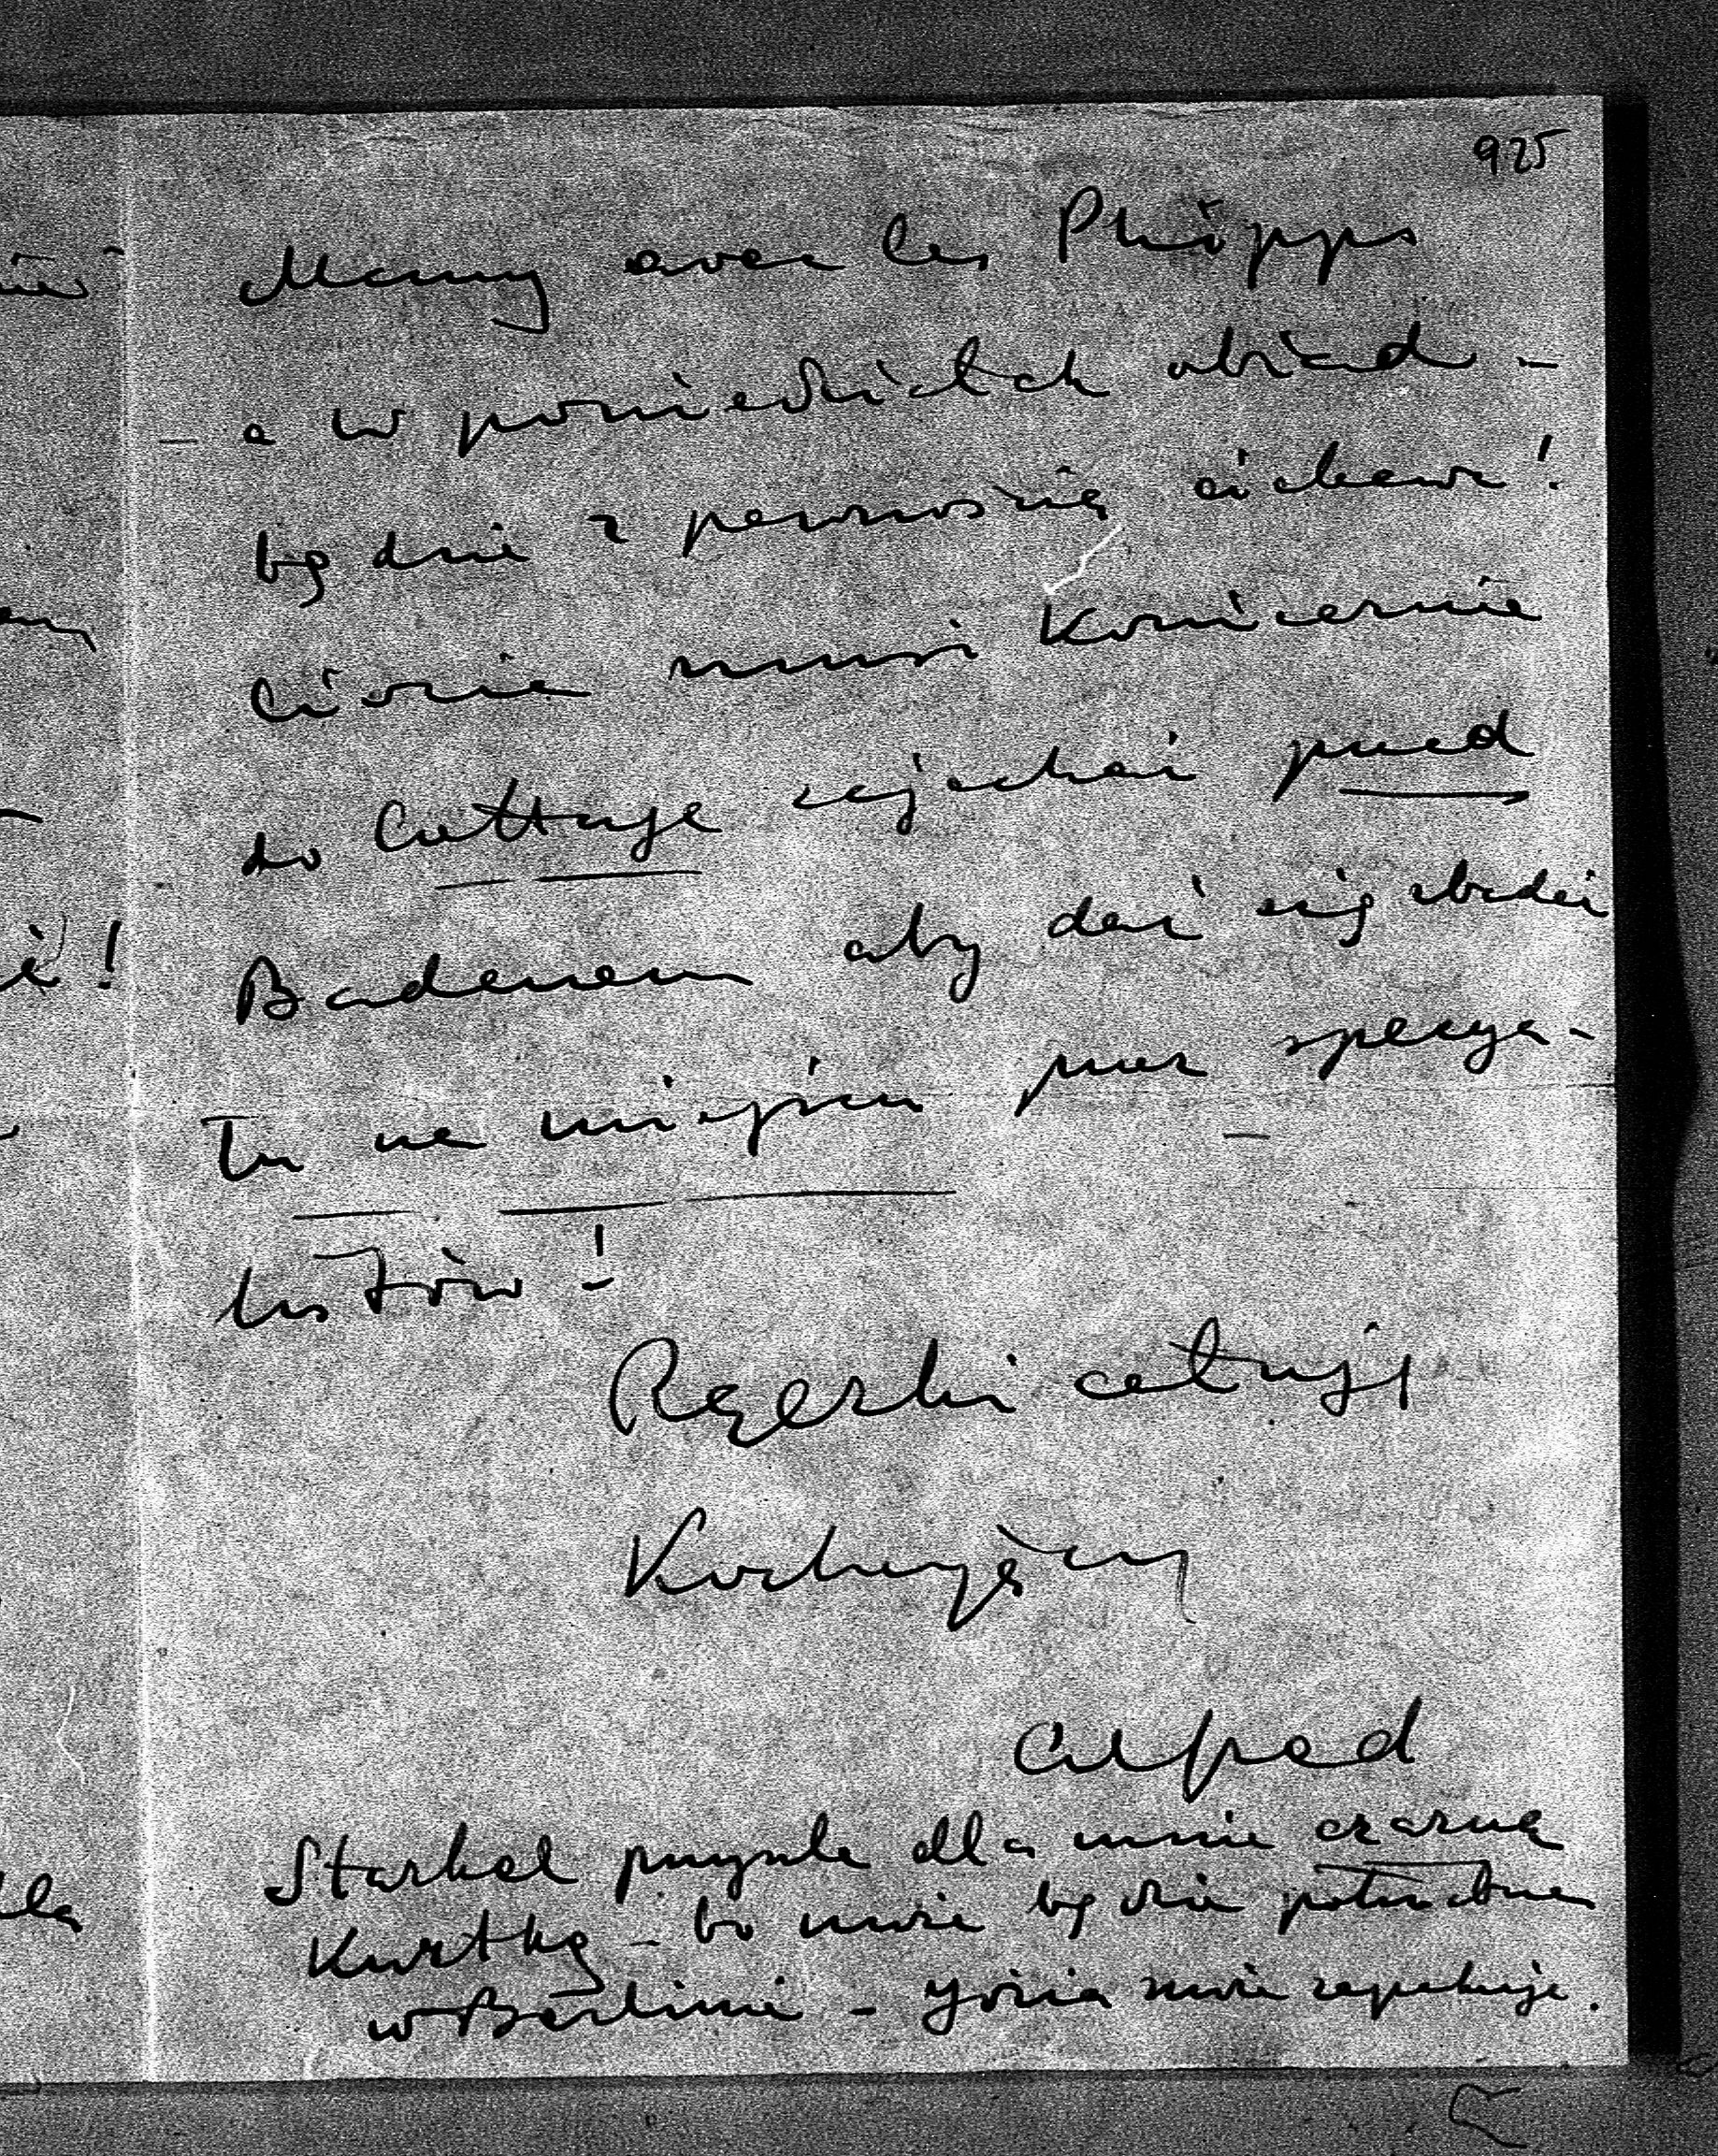 925
Mamy avec les Phipps
– a w poniedziałek obiad –
będzie z pewnością ciekawe!
Ciocia musi koniecznie
do Cottage zajechać przed
Badenem aby dać się zbadać
Tu na miejscu przez specya-
listów!
Rączki całuję
Kochający
Alfred
Starkel przyśle dla mnie czarną
Kurtkę – bo może będzie potrzebna
w Berlinie – Józia może zapakuje.